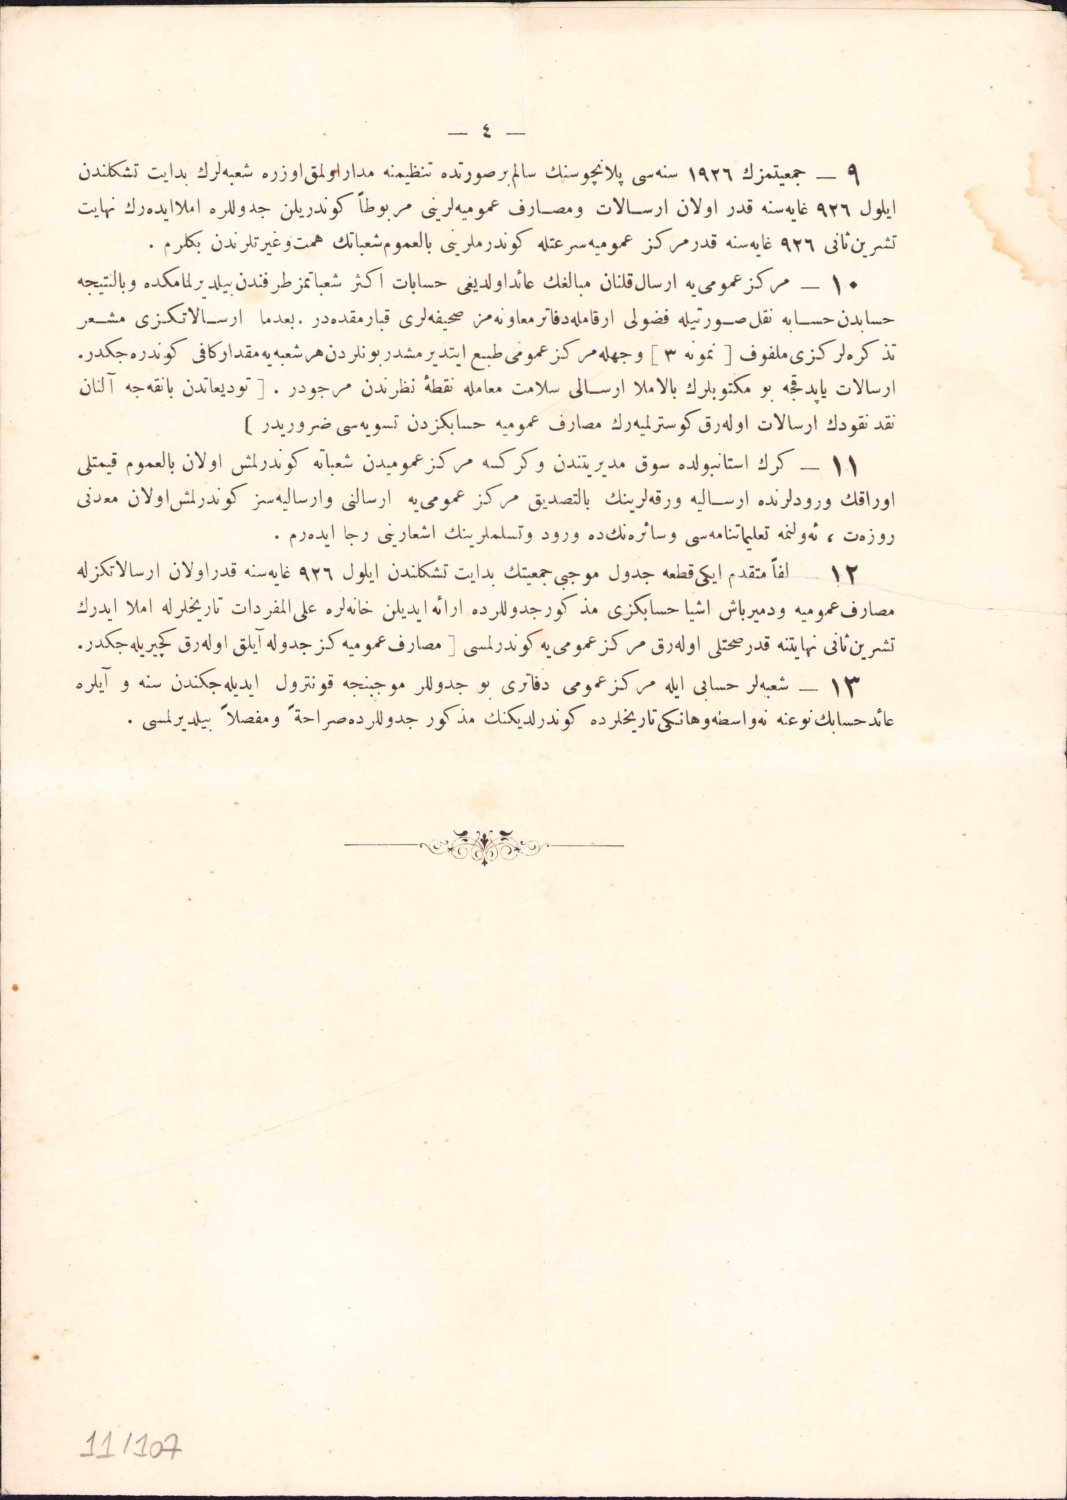 — ٤ —
٩ — جمعیتمزك ١٩٢٦ سنه‌سی پلانچوسنك سالم برصورتده تنظیمنه مدار اولمق اوزره شعبه‌لرك بدایت تشکلندن
ایلول ٩٢٦ غایه‌سنه قدر اولان ارسالات ومصارف عمومیه‌لرینی مربوطاً کوندریلن جدوللره املا ایده‌رك نهایت
تشرین ثانی ٩٢٦ غایه‌سنه قدر مرکز عمومیه سرعتله کوندرملرینی بالعموم شعباتك همت وغیرتلرندن بکلرم .
١٠ — مرکز عمومی‌یه ارسال قلنان مبالغك عائد اولدیغی حسابات اکثر شعباتمز طرفندن بیلدیرلمامکده وبالنتیجه
حسابدن حسابه نقل صورتیله فضولی ارقامله دفاتر معاونه‌مز صحیفه‌لری قبارمقده‌در . بعدما ارسالاتکزی مشعر
تذکره‌لرکزی ملفوف [ نمونه ٣ ] وجهله مرکز عمومی طبع ایتدیرمشدر بونلردن هر شعبه‌یه مقدار کافی کوندره‌جکدر.
ارسالات یاپدقجه بو مکتوبلرك بالاملا ارسالی سلامت معامله نقطهٔ نظرندن مرجودر . [ تودیعاتدن بانقه‌جه آلنان
نقد نقودك ارسالات اوله‌رق کوسترلمیه‌رك مصارف عمومیه حسابکزدن تسویه‌سی ضروریدر )
١١ — کرك استانبولده سوق مدیریتندن وکرکسه مرکز عمومیدن شعباته کوندرلمش اولان بالعموم قیمتلی
اوراقك ورودلرنده ارسالیه ورقه‌لرینك بالتصدیق مرکز عمومی‌یه ارسالنی وارسالیه‌سز کوندرلمش اولان معدنی
روزه‌ت ، ئه‌ولنمه تعلیماتنامه‌سی وسائره‌نك‌ده ورود وتسلملرینك اشعارینی رجا ایده‌رم .
١٢ — لفاً متقدم ایکی قطعه جدول موجبی جمعیتك بدایت تشکلندن ایلول ٩٢٦ غایه‌سنه قدر اولان ارسالاتکزله
مصارف عمومیه ودمیرباش اشیا حسابکزی مذکور جدوللرده ارائه ایدیلن خانه‌لره علی المفردات تاریخلرله املا ایدرك
تشرین ثانی نهایتنه قدر صحتلی اوله‌رق مرکز عمومی‌یه کوندرلمسی [ مصارف عمومیه‌کز جدوله آیلق اوله‌رق کچیریله‌جکدر.
١٣ — شعبه‌لر حسابی ایله مرکز عمومی دفاتری بو جدوللر موجبنجه قونترول ایدیله‌جکندن سنه و آیلره
عائد حسابك نوعنه نه‌واسطه وهانکی تاریخلرده کوندرلدیکنك مذکور جدوللرده صراحةً ومفصلاً بیلدیرلمسی .
11/107